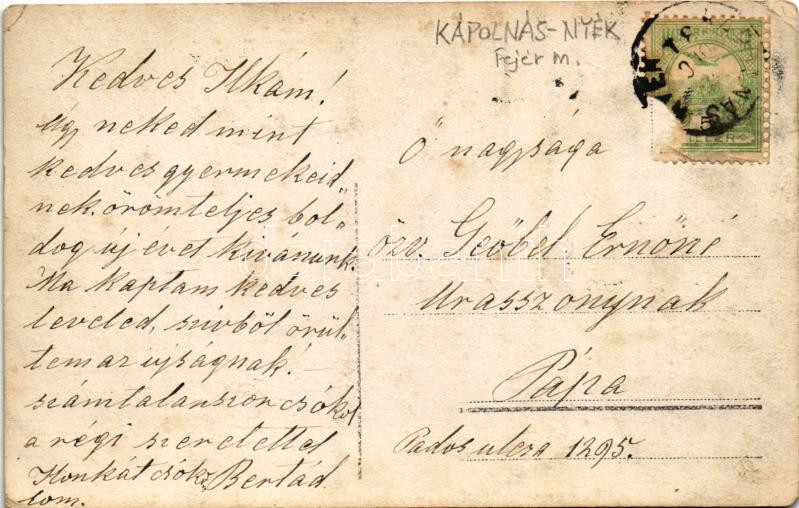 KÁPOLNÁS-NYÉK
Fejér m.
Kedves Ilkám!
Úgy neked mint
kedves gyermekeid„
nek. örömteljes bol„
dog új évet kivánunk.
Ma kaptam kedves
leveled, szivből örül„
tem az ujságnak.
számtalanszor csókol
a régi szeretettel
Ilonkát csóko„ Bertád
lom.
Ő nagysága
özv. Geöbel Ernőné
Urasszonynak
Pápa
utcza 1295.
darabanth